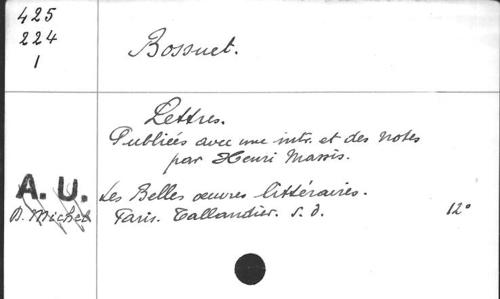 425
224
1
Bossuet.
Lettres.
Publiées avec une intr. et des notes
par Henri Massis.
A. U. Les Belles œuvres littéraires.
Paris. Tallandier. s. d. 12°